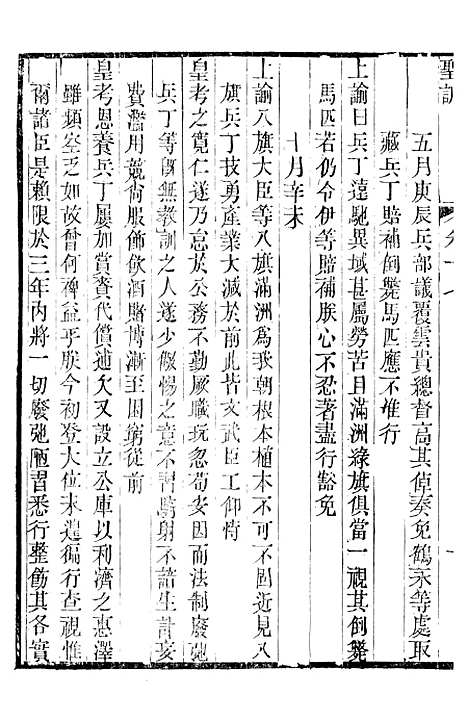 聖訓
五月庚辰兵部議覆雲貴總督高其倬奏免鶴永等處取
藏兵丁賠補倒斃馬匹應不准行
上諭曰兵丁遠馳異域甚屬勞苦且滿洲綠旗俱當一視其倒斃
馬匹若仍令伊等賠補朕心不忍著盡行豁免
十月辛未
上諭八旗大臣等八旗滿洲為我朝根本植本不固近見八
旗兵丁技勇產業大減於前此皆文武臣工仰恃
皇考之寬仁遂乃怠於公務不勤厥職玩忽苟安因而法制廢弛
兵丁等飭無教訓之人遂少儆惕之意不習騎射不諳生計妄
費濫用競尚服飾飲酒賭博漸至困窮從前
皇考恩養兵丁屢加賞賚代償逋欠又設立公庫以利濟之惠澤
雖頻窒乏如故曾何裨益乎朕今初登大位未遑徧行查視惟
爾諸臣是賴限於三年內將一切廢弛陋習悉行整飭其各實